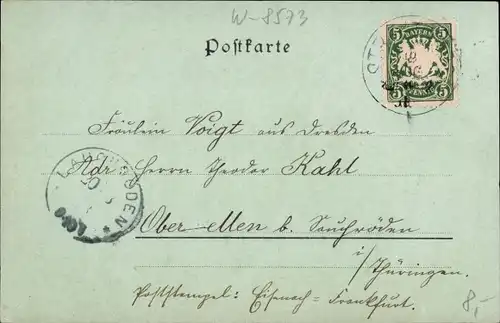 W-8573
Postkarte
BAYERN
5 5
5 PFENNIG 5
Fräulein Voigt aus Dresden
Adr: Herrn Theodor Kahl
Ober-ellen b. Sauchröden
i/Thüringen.
Poststempel: Eisenach-Frankfurt.
8,-